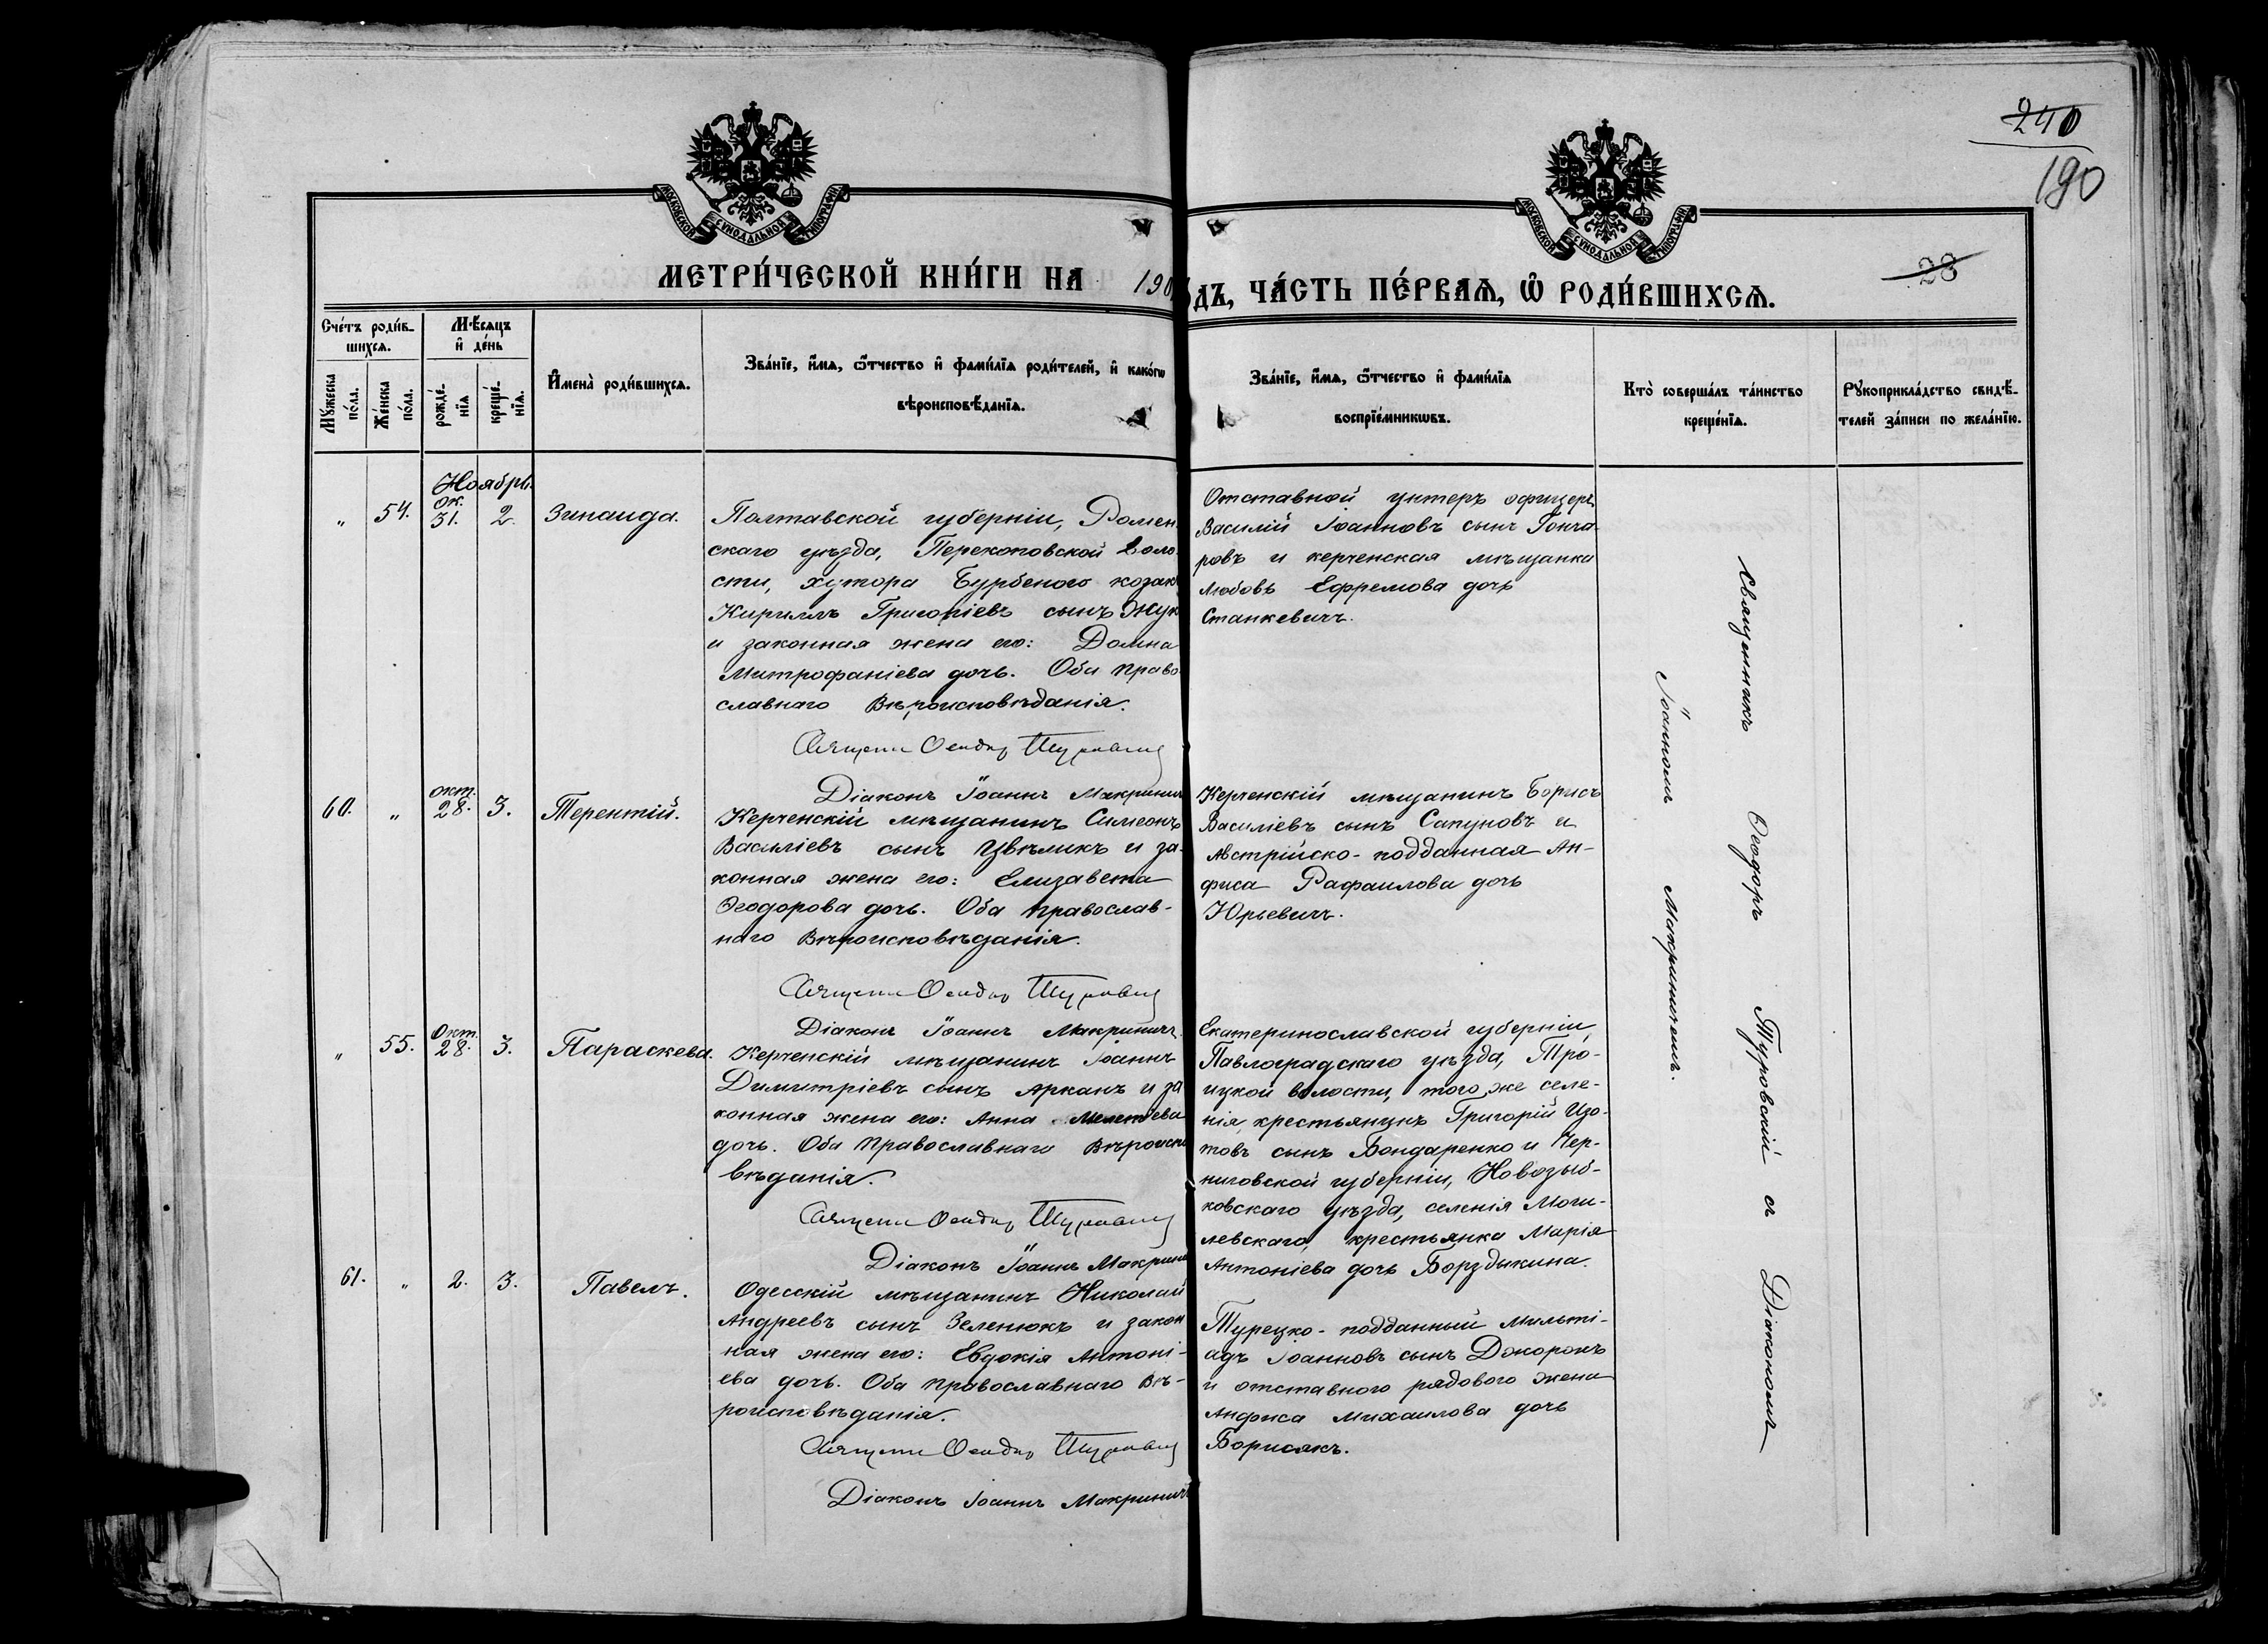 240
190
28
МОСКОВСКОЙ СѴНОДАЛЬНОЙ ТИПОГРАФІИ
МОСКОВСКОЙ СѴНОДАЛЬНОЙ ТИПОГРАФІИ
МЕТРИ́ЧЕСКОЙ КНИ́ГИ НА 190
ДЪ, ЧА́СТЬ ПЕ́РВАѦ, Ѡ РОДИ́ВШИХСѦ.
Сче́тъ роди́в-
шихсѧ.
Мѣ́сѧцъ
и де́нь
Мꙋ́жеска
по́ла.
Же́нска
по́ла.
рожде́-
нїѧ
креще́-
нїѧ.
И҆мена̀ роди́вшихсѧ.
Зва́нїе, и҆́мѧ, ѻ҆́тчество и҆ фами́лїѧ роди́телей, и҆ како́гѡ
вѣроисповѣ́данїѧ.
Зва́нїе, и҆́мѧ, ѻ҆́тчество и҆ фами́лїѧ
воспрїе́мникѡвъ.
Кто̀ соверша́лъ та́инство
креще́нїѧ.
Рꙋкоприкла́дство свидѣ́-
телей за́писи по жела́нїю.
Ноябрь.
" 54. ок. 31. 2. Зинаида.
Полтавской губерніи, Ромен-
скаго уѣзда, Перекоповской воло-
сти, хутора Бурбеного козак
Кириллъ Григоріевъ сынъ Жук
и законная жена его: Домна
Митрофаніева дочь. Оба право-
славнаго Вѣроисповѣданія.
Священн Ѳеодор Туровский
Діаконъ Іоаннъ Макринич
Отставной унтеръ офицеръ
Василій Іоанновъ сынъ Гонча-
ровъ и керченская мѣщанка
Любовь Ефремова дочь
Станкевичъ.
60. " окт. 28. 3. Терентій.
Керченскій мѣщанинъ Симеонъ
Василіевъ сынъ Цвѣликъ и за-
конная жена его: Елизавета
Ѳеодорова дочь. Оба православ-
наго Вѣроисповѣданія.
Священн Ѳеодор Туровский
Діаконъ Іоаннъ Макриничъ.
Керченскій мѣщанинъ Борисъ
Василіевъ сынъ Сапуновъ и
Австрійско-подданная Ан-
фиса Рафаилова дочь
Юрьевичъ.
" 55. Окт. 28. 3. Параскева.
Керченскій мѣщанинъ Іоаннъ
Димитріевъ сынъ Арканъ и за
конная жена его: Анна Мелентіева
дочь. Оба Православнаго Вѣроиспо
вѣданія.
Священн Ѳеодор Туровский
Діаконъ Іоаннъ Макрини
Екатеринославской губерніи,
Павлоградскаго уѣзда, Тро-
ицкой волости, того же селе-
нія, крестьянинъ Григорій Изо-
товъ сынъ Бондаренко и Чер-
ниговской губерніи, Новозыб-
ковскаго уѣзда, селенія Моги-
левскаго, крестьянка Марія
Антоніева дочь Борздыкина.
61. " 2. 3. Павелъ.
Одесскій мѣщанинъ Николай
Андреевъ сынъ Зеленюкъ и закон
ная жена его: Евдокія Антоні-
ева дочь. Оба православнаго Вѣ-
роисповѣданія.
Священн Ѳеодор Туровский
Діаконъ Іоаннъ Макриничъ
Турецко-подданный Мильті-
адъ Іоанновъ сынъ Джоронъ
и отставного рядового жена
Анфиса Михаилова дочь
Борисякъ.
Священникъ Ѳеодоръ Туровскій съ Діакономъ
Іоанномъ Макриничемъ.